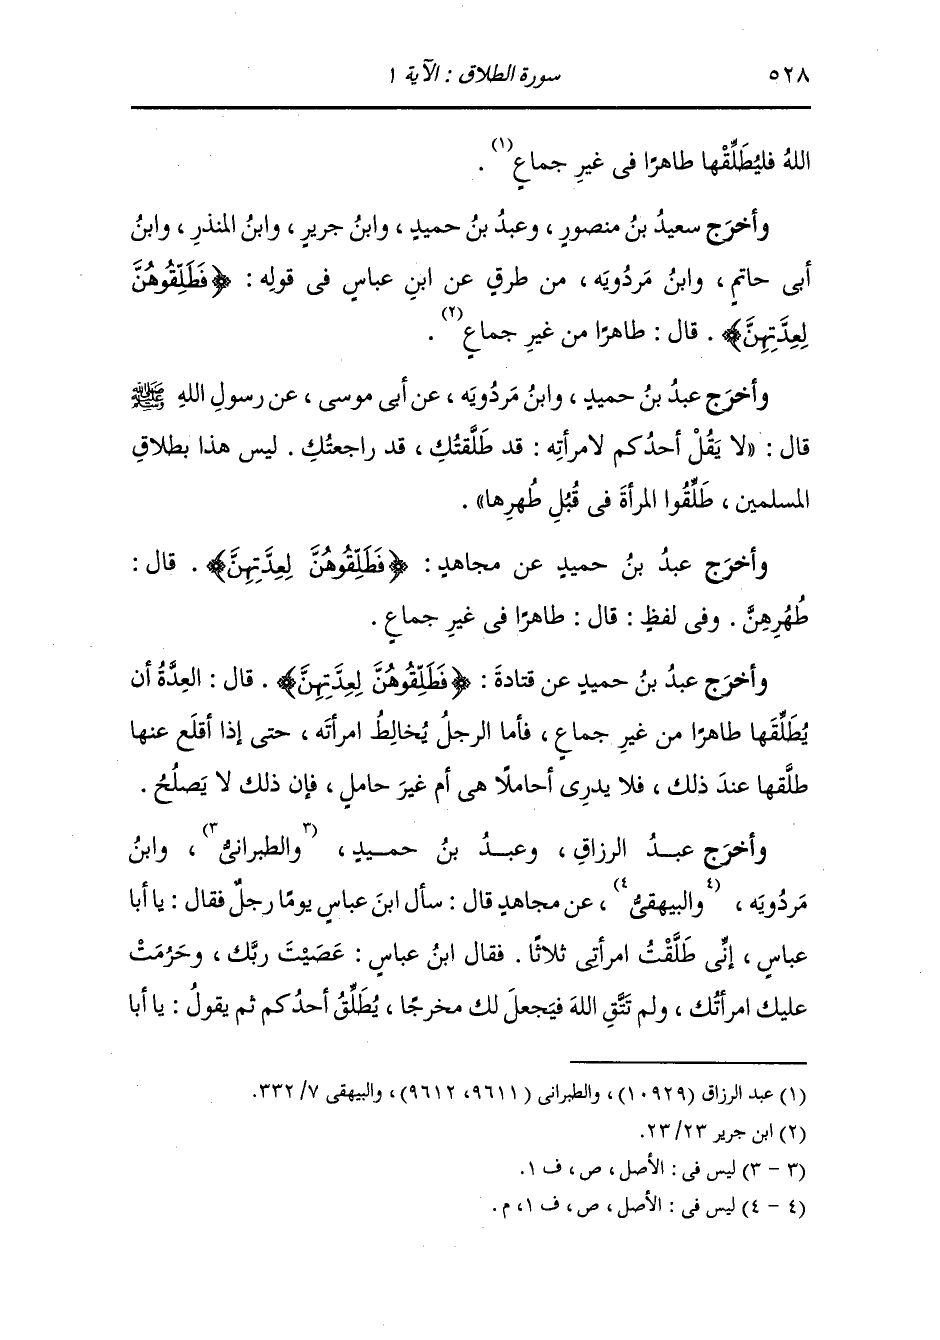 ٥٢٨ سورة الطلاق : الآية ١
اللهُ فليُطَلِّقْها طاهرًا فى غيرِ جماعٍ(١) .
وأخرَج سعيدُ بنُ منصورٍ ، وعبدُ بنُ حميدٍ ، وابنُ جريرٍ ، وابنُ المنذرِ ، وابنُ
أبى حاتمٍ ، وابنُ مَردُويَه ، من طرقٍ عن ابنِ عباسٍ فى قولِه : ﴿فَطَلِّقُوهُنَّ
لِعِدَّتِهِنَّ﴾ . قال : طاهرًا من غيرِ جماعٍ(٢) .
وأخرَج عبدُ بنُ حميدٍ ، وابنُ مَردُويَه ، عن أبى موسى ، عن رسولِ اللهِ ﷺ
قال : «لا يَقُلْ أحدُكم لامرأتِه : قد طَلَّقتُكِ ، قد راجعتُكِ . ليس هذا بطلاقِ
المسلمين ، طَلِّقُوا المرأةَ فى قُبُلِ طُهرِها» .
وأخرَج عبدُ بنُ حميدٍ عن مجاهدٍ : ﴿فَطَلِّقُوهُنَّ لِعِدَّتِهِنَّ﴾ . قال :
طُهُرِهِنَّ . وفى لفظٍ : قال : طاهرًا فى غيرِ جماعٍ .
وأخرَج عبدُ بنُ حميدٍ عن قتادةَ : ﴿فَطَلِّقُوهُنَّ لِعِدَّتِهِنَّ﴾ . قال : العِدَّةُ أن
يُطَلِّقَها طاهرًا من غيرِ جماعٍ ، فأما الرجلُ يُخالِطُ امرأتَه ، حتى إذا أقلَع عنها
طلَّقها عندَ ذلك ، فلا يدرِى أحاملًا هى أم غيرَ حاملٍ ، فإن ذلك لا يَصلُحُ .
وأخرَج عبدُ الرزاقِ ، وعبدُ بنُ حميدٍ ، (٣والطبرانىُّ٣) ، وابنُ
مَردُويَه ، (٤والبيهقىُّ٤) ، عن مجاهدٍ قال : سأل ابنَ عباسٍ يومًا رجلٌ فقال : يا أبا
عباسٍ ، إنِّى طَلَّقْتُ امرأتِى ثلاثًا . فقال ابنُ عباسٍ : عَصَيْتَ ربَّك ، وحَرُمَتْ
عليك امرأتُك ، ولم تَتَّقِ اللهَ فيَجعلَ لك مخرجًا ، يُطَلِّقُ أحدُكم ثم يقولُ : يا أبا
(١) عبد الرزاق (١٠٩٢٩) ، والطبرانى (٩٦١١، ٩٦١٢) ، والبيهقى ٧/ ٣٣٢.
(٢) ابن جرير ٢٣/ ٢٣.
(٣ - ٣) ليس فى : الأصل ، ص ، ف ١.
(٤ - ٤) ليس فى : الأصل ، ص ، ف ١، م .